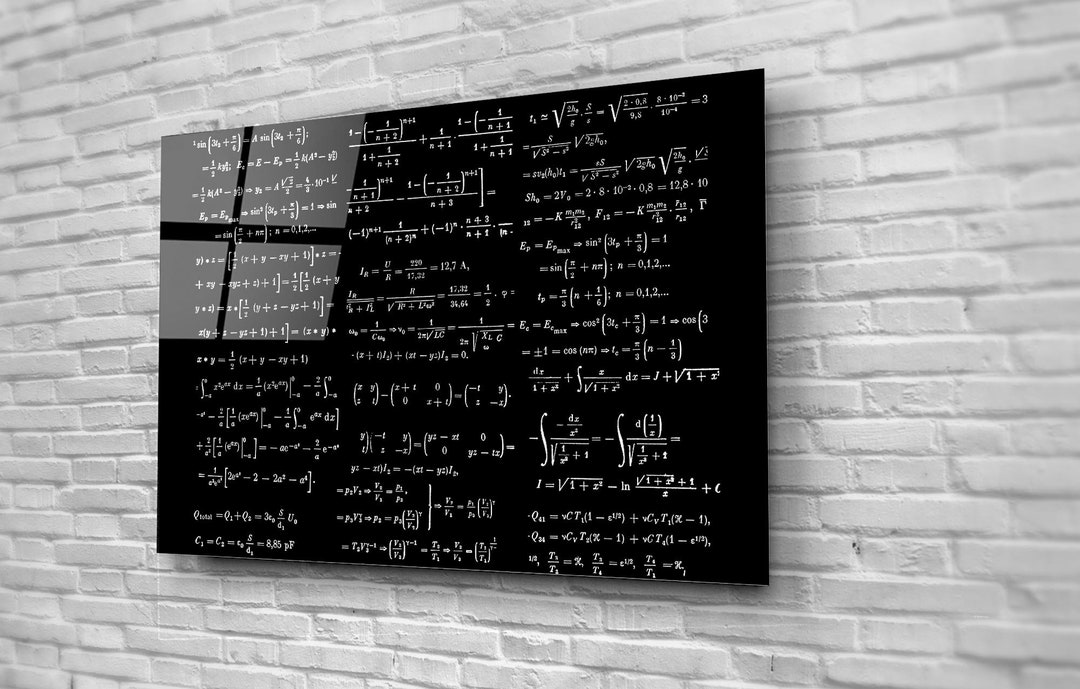 sin(3t₂ + π/6) = A sin(3t₂ + π/6);
= 1/2 ky₂²; Eₑ = E − Eₚ = 1/2 k(A² − y₂²)
= 1/2 k(A² − y₂²) ⇒ y₂ = A √2/2 = 4/3 · 10⁻¹
Eₚ = Eₚₘₐₓ ⇒ sin²(3tₚ + π/3) = 1 ⇒ sin
= sin(π/2 + nπ); n = 0,1,2,...
y) * z = [1/2 (x + y − xy + 1)] * z =
+ xy − xyz + z) + 1] = 1/2 [1/2 (x + y
y * z) = x * [1/2 (y + z − yz + 1)] =
x(y + z − yz + 1) + 1] = (x * y) *
x * y = 1/2 (x + y − xy + 1)
∫₋ₐ⁰ x²eᵃˣ dx = 1/a (x²eᵃˣ)|₋ₐ⁰ − 2/a ∫₋ₐ⁰
− 2/a [1/a (xeᵃˣ)|₋ₐ⁰ − 1/a ∫₋ₐ⁰ eᵃˣ dx]
+ 2/a² [1/a (eᵃˣ)|₋ₐ⁰] = − ae⁻ᵃ² − 2/a e⁻ᵃ²
[2eᵃ² − 2 − 2a² − a⁴].
Qtotal = Q₁ + Q₂ = 3ε₀ S/d₁ U₀
C₁ = C₂ = ε₀ S/d₁ = 8,85 pF
1 − (−1/(n + 2))ⁿ⁺¹ / 1 + 1/(n + 2) + 1/(n + 1) · 1 − (−1/(n + 1) / 1 + 1/(n + 1)
1/(n + 1))ⁿ⁺¹ / n + 2 − 1 − (−1/(n + 2))ⁿ⁺¹ / n + 3] =
(−1)ⁿ⁺¹ 1/(n + 2)ⁿ + (−1)ⁿ · (n + 3)/(n + 1) · 1/(n
I_R = U/R = 220/17,32 = 12,7 A,
= R/√(R² + L²ω²) = 17,32/34,64 = 1/2 · φ =
ω₀ = 1/Cω₀ ⇒ ν₀ = 1/2π√LC = 1/2π√(X_L C/ω) =
· (x + t)I₂) + (xt − yz)I₂ = 0.
(x y / z t) − (x + t 0 / 0 x + t) = (−t y / z −x).
y)(−t y / z −x) = (yz − xt 0 / 0 yz − tx) =
yz − xt)I₂ = −(xt − yz)I₂,
= p₂V₂ ⇒ V₂/V₁ = p₁/p₂,
⇒ V₂/V₁ = p₁/p₂ (V₂/V₁)ᵞ
= p₃V₃ᵞ ⇒ p₂ = p₃(V₃/V₂)ᵞ
= T₂V₃ᵞ⁻¹ ⇒ (V₂/V₃)ᵞ⁻¹ = T₂/T₁ ⇒ V₂/V₃ = (T₂/T₁)
t₁ ≃ √(2h₀/g) · S/s = √(2 · 0,8/9,8) · 8 · 10⁻²/10⁻⁴ = 3
= S/√(S² − s²) √2gh₀,
= sv₂(h₀)t₁ = sS/√(S² − s²) √2gh₀ √(2h₀/g) ·
Sh₀ = 2V₀ = 2 · 8 · 10⁻² · 0,8 = 12,8 · 10
₁₂ = −K m₁m₂/r₁₂², F⃗₁₂ = −K m₁m₂/r₁₂² · r⃗₁₂/r₁₂,
Eₚ = Eₚₘₐₓ ⇒ sin²(3tₚ + π/3) = 1
= sin(π/2 + nπ); n = 0,1,2,...
tₚ = π/3 (n + 1/6); n = 0,1,2,...
= E_c = E_cₘₐₓ ⇒ cos²(3t_c + π/3) = 1 ⇒ cos(3
= ±1 = cos (nπ) ⇒ t_c = π/3 (n − 1/3)
dx/(1 + x²) + ∫ x/√(1 + x²) dx = J + √(1 + x²
−∫ (−dx/x²)/√(1/x² + 1) = −∫ d(1/x)/√(1/x² + 1) =
I = √(1 + x²) − ln (√(1 + x²) + 1)/x + C
·Q₄₁ = νCT₁(1 − ε¹ᐟ²) + νC_V T₁(ϰ − 1),
·Q₃₄ = νC_V T₂(ϰ − 1) + νCT₄(1 − ε¹ᐟ²),
¹ᐟ², T₃/T₂ = ϰ, T₃/T₄ = ε¹ᐟ², T₄/T₁ = ϰ,